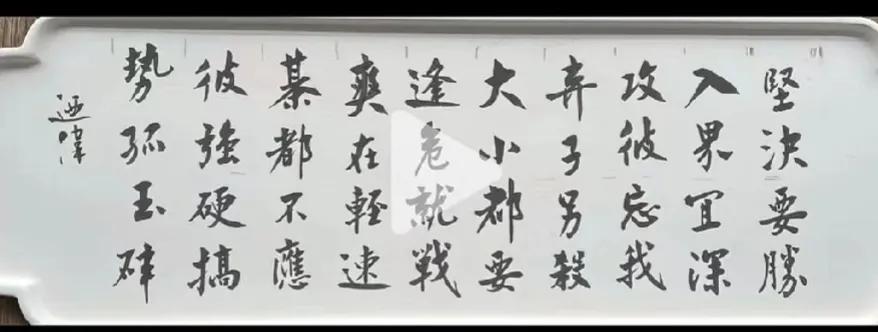 堅決要勝
入界宜深
攻彼忘我
弃子另殺
大小都要
逢危就戰
爽在輕速
棊都不應
彼強硬搞
勢孤玉碎
迺偉